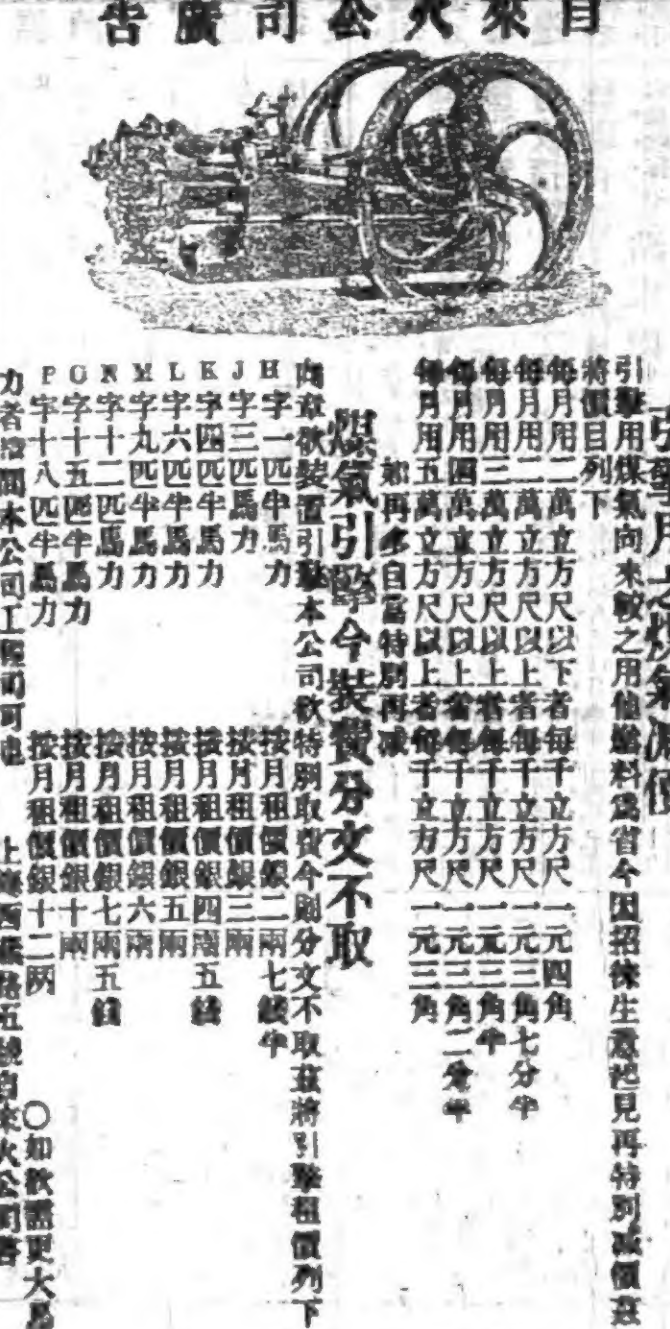 自來火公司廣吿
引擎用煤氣減價
引擎用煤氣向來較之用他燃料爲省今因招徠生意起見再特別減價茲
將價目列下
每月用二萬立方尺以下者每千立方尺一元四角
每月用二萬立方尺以上者每千立方尺一元三角七分半
每月用三萬立方尺以上者每千立方尺一元三角半
每月用四萬立方尺以上者每千立方尺一元三角二分半
每月用五萬立方尺以上者每千立方尺一元三角
如再多自當特別再減
煤氣引擎今裝費分文不取
向章欲裝置引擎本公司欲特別取費今則分文不取茲將引擎租價列下
H字一匹半馬力 按月租價銀二兩七錢半
J字三匹馬力 按月租價銀三兩
K字四匹半馬力 按月租價銀四兩五錢
L字六匹半馬力 按月租價銀五兩
M字九匹半馬力 按月租價銀六兩
N字十二匹馬力 按月租價銀七兩五錢
G字十五匹半馬力 按月租價銀十兩
P字十八匹半馬力 按月租價銀十二兩 〇如欲置更大馬
力者請問本公司工程司可也 上海西藏路五號自來火公司啓